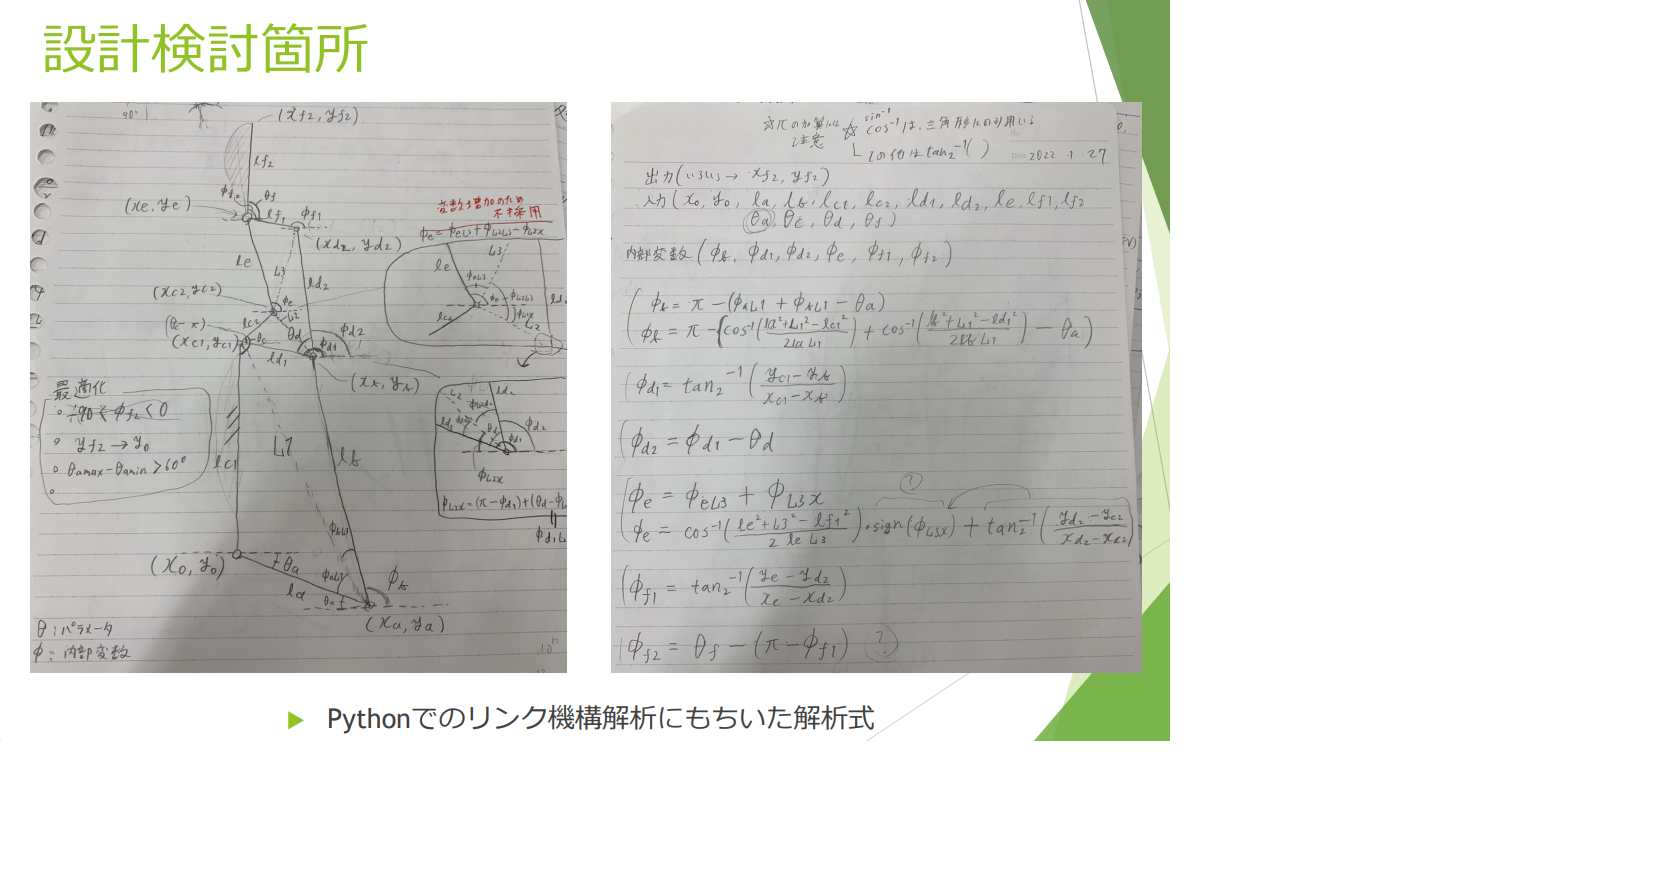 設計検討箇所
90°
(xf2, yf2)
lf2
φf2
θf
(xe, ye)
lf1
φf1
(xd2, yd2)
変数増加のため
不採用
φe = φeL3 + φL2L3 - φL2x
le
L3
ld2
(xc2, yc2)
φe
lc2
L2
(θc-π)
(xc1, yc1)
θc
θd
φd2
ld1
φd1
(xb, yb)
le
L3
φeL3
φe
φL2L3
φL2x
lc2
L2
最適化
-90 < φf2 < 0
yf2 → y0
θamax - θamin > 60°
lc1
L1
lb
ld2
φd2
ld1
θd
φd1
φL2x
φL2x = (π-φd1)+(θd-φL
φbL1
(x0, y0)
θa
la
φaL1
φb
θa
(xa, ya)
θ:パラメータ
φ:内部変数
☆πの加算には
注意
☆ sin⁻¹
cos⁻¹は、三角形にのみ用いる
└ その他はtan₂⁻¹( )
Date 2022・1・27
出力(いろいろ→ xf2, yf2)
入力(x0, y0, la, lb, lc1, lc2, ld1, ld2, le, lf1, lf2
θa, θc, θd, θf)
内部変数(φb, φd1, φd2, φe, φf1, φf2)
φb = π-(φaL1 + φbL1 - θa)
φb = π-(cos⁻¹((la²+L1²-lc1²)/(2la L1)) + cos⁻¹((lb²+L1²-ld1²)/(2lb L1)) - θa)
φd1 = tan₂⁻¹((yc1-yb)/(xc1-xb))
φd2 = φd1 - θd
φe = φeL3 + φL3x
?
φe = cos⁻¹((le²+L3²-lf1²)/(2 le L3))・sign(φL3x) + tan₂⁻¹((yd2-yc2)/(xd2-xc2))
φf1 = tan₂⁻¹((ye-yd2)/(xe-xd2))
φf2 = θf - (π-φf1) ?
Pythonでのリンク機構解析にもちいた解析式